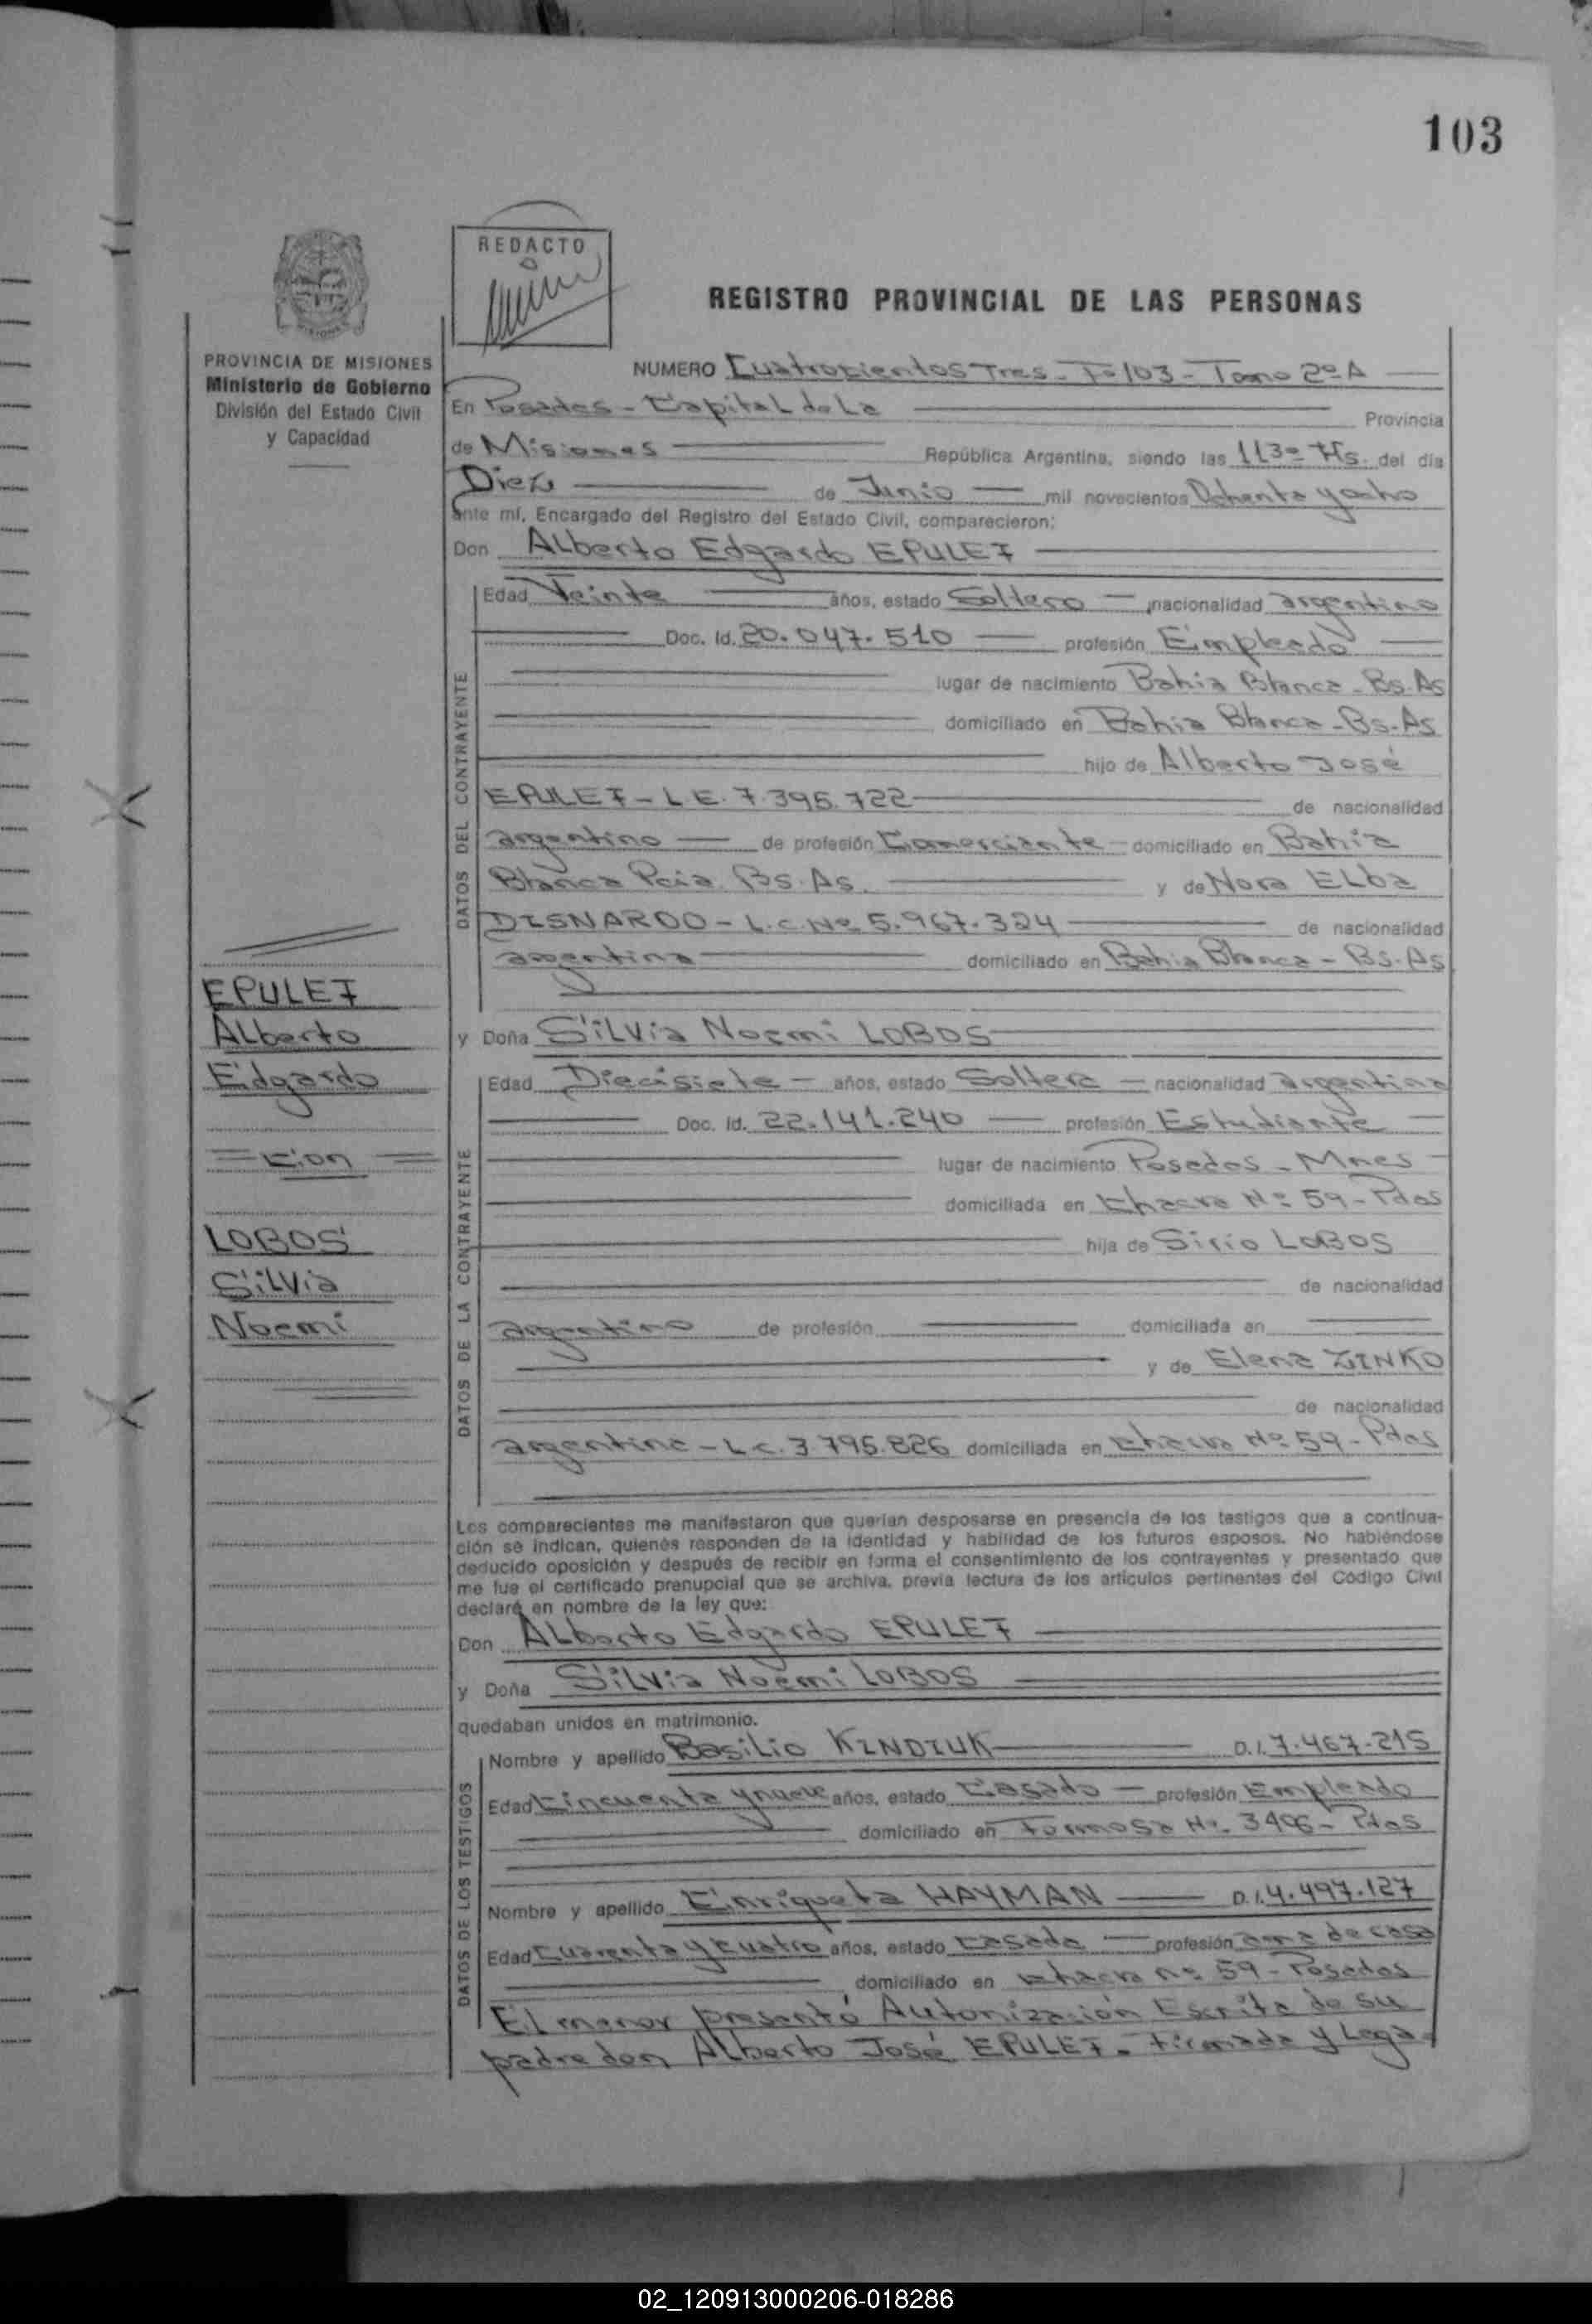 103
REDACTO
REGISTRO PROVINCIAL DE LAS PERSONAS
PROVINCIA DE MISIONES
Ministerio de Gobierno
División del Estado Civil
y Capacidad
NUMERO Cuatrocientos Tres - Fº 103 - Tomo 2º A
En Posadas - Capital de La Provincia
de Misiones República Argentina, siendo las 1130 Hs. del día
Diez de Junio mil novecientos Ochenta y ocho
ante mí, Encargado del Registro del Estado Civil, comparecieron:
Don Alberto Edgardo EPULEF
DATOS DEL CONTRAYENTE
Edad Veinte años, estado Soltero nacionalidad argentino
Doc. Id. 20.047.510 profesión Empleado
lugar de nacimiento Bahia Blanca - Bs. As
domiciliado en Bahia Blanca - Bs. As
hijo de Alberto José
EPULEF - L.E. 7.395.722 de nacionalidad
argentino de profesión Comerciante - domiciliado en Bahia
Blanca Pcia. Bs. As. y de Nora ELba
DISNARDO - L.C. Nº 5.967.324 de nacionalidad
argentina domiciliado en Bahia Blanca - Bs. As
EPULEF
ALberto
Edgardo
= con =
LOBOS
SiLVia
Noemi
y Doña SiLVia Noemi LOBOS
DATOS DE LA CONTRAYENTE
Edad Diecisiete - años, estado Soltera - nacionalidad argentina
Doc. Id. 22.141.240 profesión Estudiante
lugar de nacimiento Posadas - Mnes
domiciliada en Chacra Nº 59 - Pdas
hija de Sirio LOBOS
de nacionalidad
argentino de profesión domiciliada en
y de Elena ZINKO
de nacionalidad
argentina - L.C. 3.795.826 domiciliada en Chacra Nº 59 - Pdas
Los comparecientes me manifestaron que querían desposarse en presencia de los testigos que a continua-
ción se indican, quienes responden de la identidad y habilidad de los futuros esposos. No habiéndose
deducido oposición y después de recibir en forma el consentimiento de los contrayentes y presentado que
me fue el certificado prenupcial que se archiva, previa lectura de los artículos pertinentes del Código Civil
declaré en nombre de la ley que:
Don ALberto Edgardo EPULEF
y Doña SiLVia Noemi LOBOS
quedaban unidos en matrimonio.
DATOS DE LOS TESTIGOS
Nombre y apellido Basilio KINDZUK D.I. 7.467.215
Edad Cincuenta y nueve años, estado Casado - profesión Empleado
domiciliado en Formosa Nº 3406 - Pdas
Nombre y apellido Enriqueta HAYMAN D.I. 4.497.127
Edad Cuarenta y Cuatro años, estado Casada - profesión ama de casa
domiciliado en Chacra Nº 59 - Posadas
El menor presentó Autorización Escrita de su
padre don Alberto José EPULEF - Firmada y Lega-
02_120913000206-018286